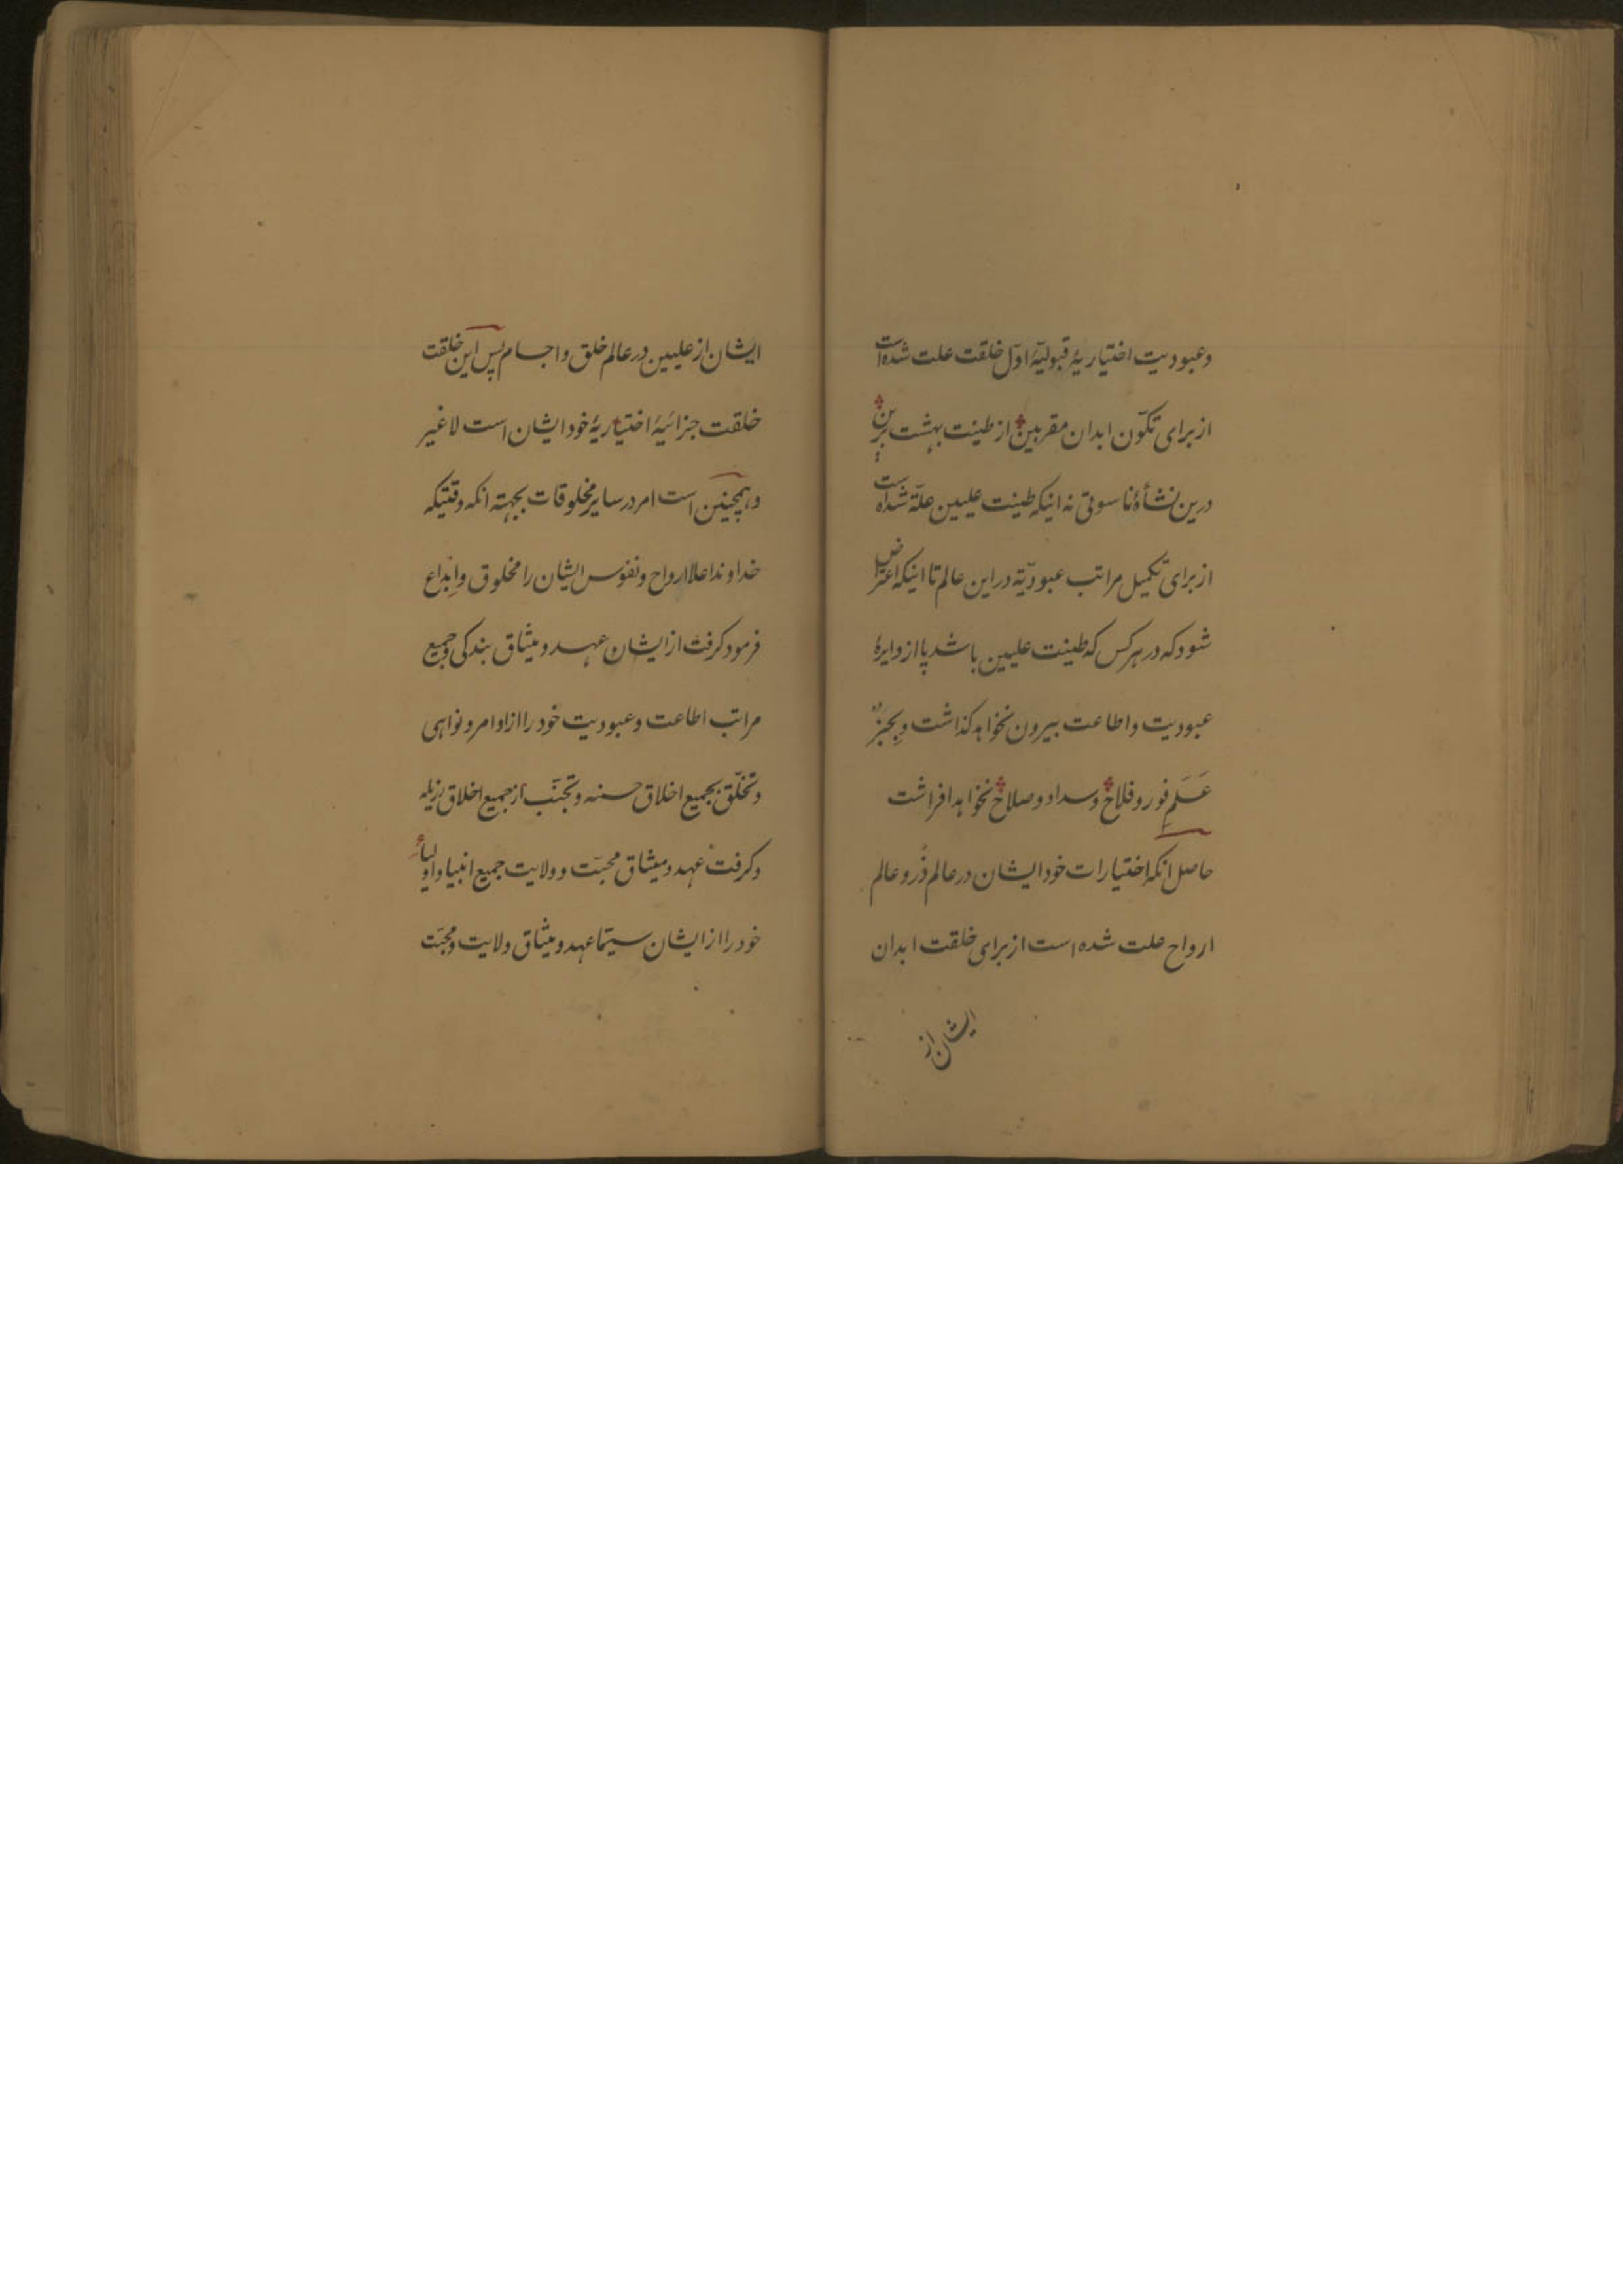 وعبودیت اختیاریهٔ قبولیّهٔ اوّل خلقت علت شده است
از برای تکوّن ابدان مقربین از طینت بهشت برین
درین نشأهٔ ناسوتی نه اینکه طینت علیین علّة شده است
از برای تکمیل مراتب عبودیّة در این عالم تا اینکه اعتراض
شود که در هر کس که طینت علیین باشد پا از دایرهٔ
عبودیت واطاعت بیرون نخواهد کذاشت وبجز
عَلَمِ فور وفلاح وسداد وصلاح نخواهد افراشت
حاصل انکه اختیارات خود ایشان در عالم ذر وعالم
ارواح علت شده است از برای خلقت ابدان
ایشان از
ایشان از علیین در عالم خلق واجسام پس این خلقت
خلقت جزائیهٔ اختیاریهٔ خود ایشان است لاغیر
وهمچنین است امر در سایر مخلوقات بجهته انکه وقتیکه
خداوند اعلا ارواح ونفوس ایشان را مخلوق وإبداع
فرمود کرفت از ایشان عهد و میثاق بندکی وجمیع
مراتب اطاعت وعبودیت خود را از اوامر ونواهی
وتخلّق بجمیع اخلاق حسنه وتجنّب از جمیع اخلاق رزیله
وکرفت عهد ومیثاق محبّت وولایت جمیع انبیا واولیاء
خود را از ایشان سیّما عهد ومیثاق ولایت ومحبّت